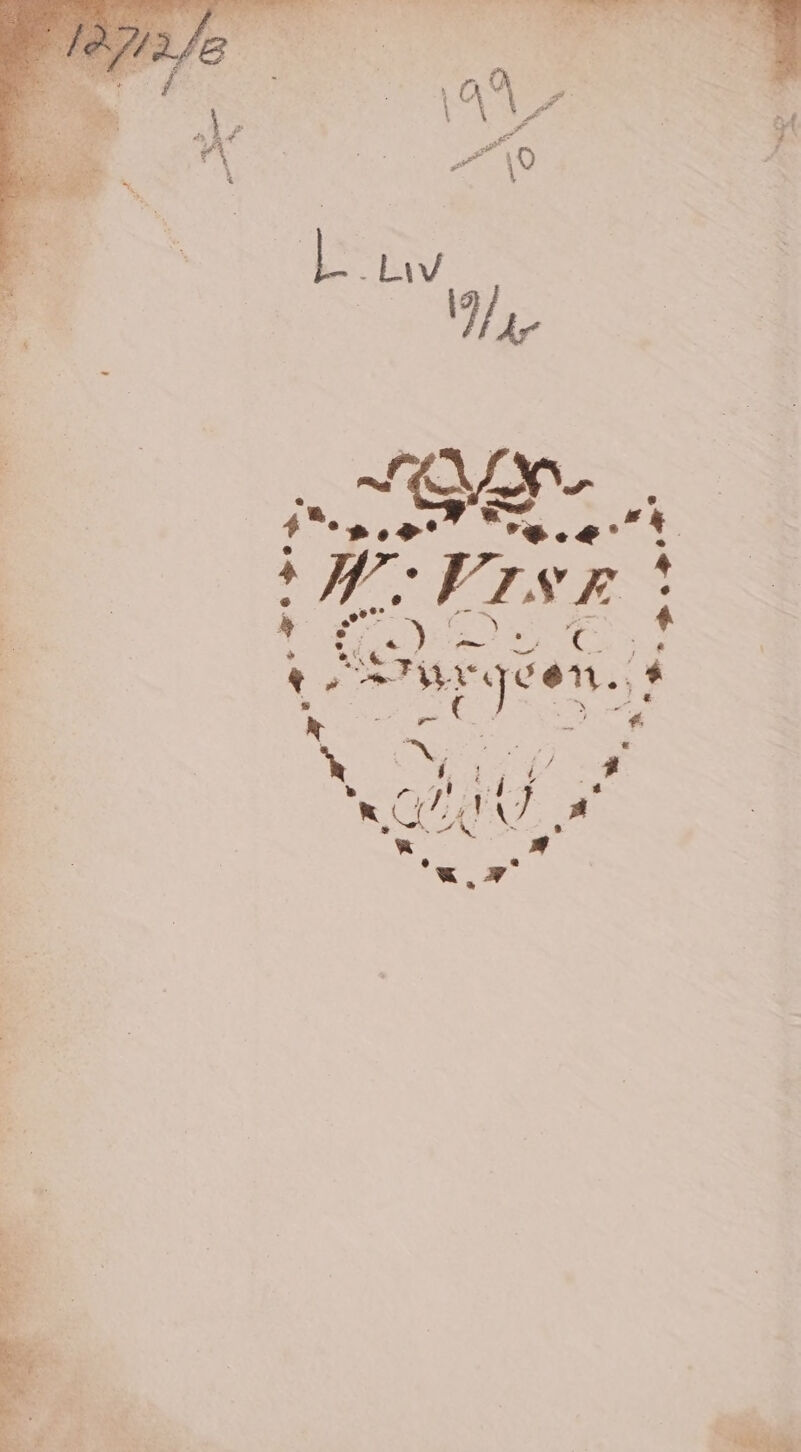 12712/B
199/10
L. LIV
19/
W: VISE
Surgeon.